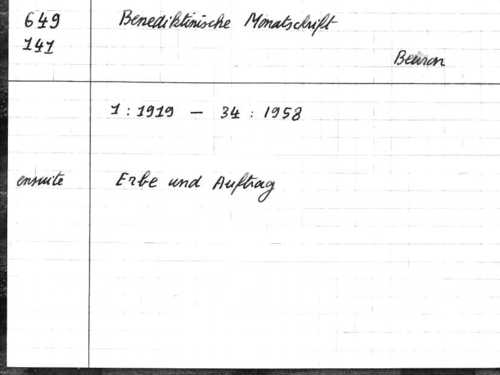 649 Benediktinische Monatschrift
141
Beuron
1 : 1919 — 34 : 1958
ensuite Erbe und Auftrag